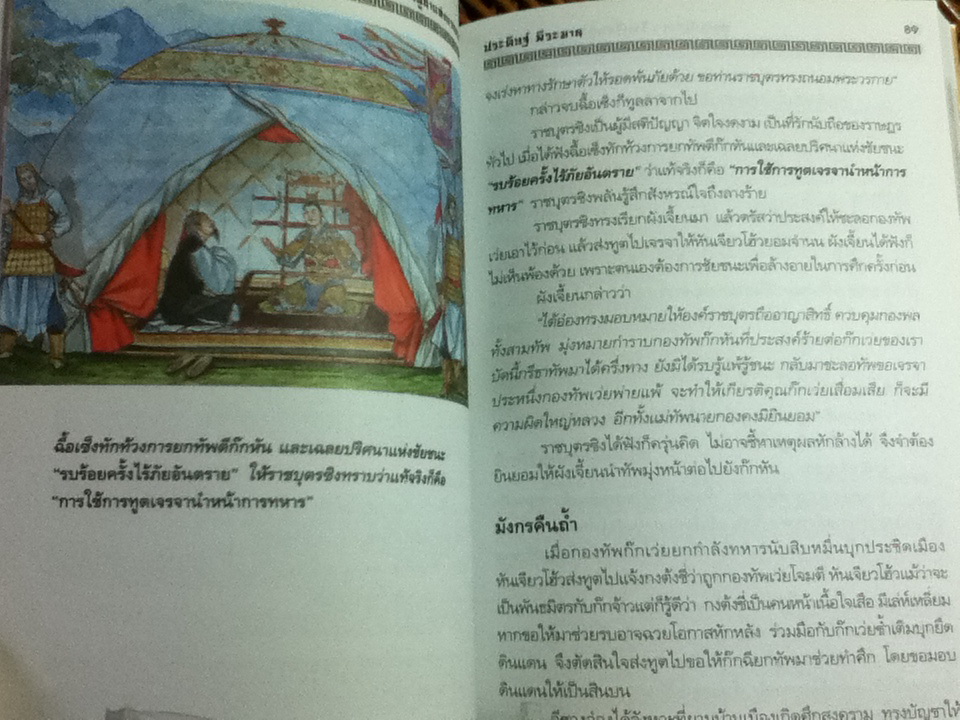 ฉี้อเซิงทักท้วงการยกทัพตีก๊กหัน และเฉลยปริศนาแห่งชัยชนะ
"รบร้อยครั้งไร้ภัยอันตราย" ให้ราชบุตรซิงทราบว่าแท้จริงก็คือ
"การใช้การทูตเจรจานำหน้าการทหาร"
ประดิษฐ์ พีระมาน
๘๑
จงเร่งหาทางรักษาตัวให้รอดพ้นภัยด้วย ขอท่านราชบุตรทรงถนอมพระวรกาย"
กล่าวจบฉี้อเซิงก็ทูลลาจากไป
ราชบุตรซิงเป็นผู้มีสติปัญญา จิตใจงดงาม เป็นที่รักนับถือของราษฎร
ทั่วไป เมื่อได้ฟังฉี้อเซิงทักท้วงการยกทัพตีก๊กหันและเฉลยปริศนาแห่งชัยชนะ
"รบร้อยครั้งไร้ภัยอันตราย" ว่าแท้จริงก็คือ "การใช้การทูตเจรจานำหน้าการ
ทหาร" ราชบุตรซิงพลันรู้สึกสังหรณ์ใจถึงลางร้าย
ราชบุตรซิงทรงเรียกผังเจี้ยนมา แล้วตรัสว่าประสงค์ให้ชะลอกองทัพ
เว่ยเอาไว้ก่อน แล้วส่งทูตไปเจรจาให้หันเจียวโฮ้วยอมจำนน ผังเจี้ยนได้ฟังก็
ไม่เห็นพ้องด้วย เพราะตนเองต้องการชัยชนะเพื่อล้างอายในการศึกครั้งก่อน
ผังเจี้ยนกล่าวว่า
"ไต้อ๋องทรงมอบหมายให้องค์ราชบุตรถืออาญาสิทธิ์ ควบคุมกองพล
ทั้งสามทัพ มุ่งหมายกำราบกองทัพก๊กหันที่ประสงค์ร้ายต่อก๊กเว่ยของเรา
บัดนี้กรีธาทัพมาได้ครึ่งทาง ยังมิได้รบรู้แพ้รู้ชนะ กลับมาชะลอทัพขอเจรจา
ประหนึ่งกองทัพเว่ยพ่ายแพ้ จะทำให้เกียรติคุณก๊กเว่ยเสื่อมเสีย ก็จะมี
ความผิดใหญ่หลวง อีกทั้งแม่ทัพนายกองคงมิยินยอม"
ราชบุตรซิงได้ฟังก็ครุ่นคิด ไม่อาจชี้หาเหตุผลหักล้างได้ จึงจำต้อง
ยินยอมให้ผังเจี้ยนนำทัพมุ่งหน้าต่อไปยังก๊กหัน
มังกรคืนถ้ำ
เมื่อกองทัพก๊กเว่ยยกกำลังทหารนับสิบหมื่นบุกประชิดเมือง
หันเจียวโฮ้วส่งทูตไปแจ้งกงต้งชี่ว่าถูกกองทัพเว่ยโจมตี หันเจียวโฮ้วแม้ว่าจะ
เป็นพันธมิตรกับก๊กจ้าวแต่ก็รู้ดีว่า กงต้งชี่เป็นคนหน้าเนื้อใจเสือ มีเล่ห์เหลี่ยม
หากขอให้มาช่วยรบอาจฉวยโอกาสหักหลัง ร่วมมือกับก๊กเว่ยซ้ำเติมบุกยึด
ดินแดน จึงตัดสินใจส่งทูตไปขอให้ก๊กฉียกทัพมาช่วยทำศึก โดยขอมอบ
ดินแดนให้เป็นสินบน